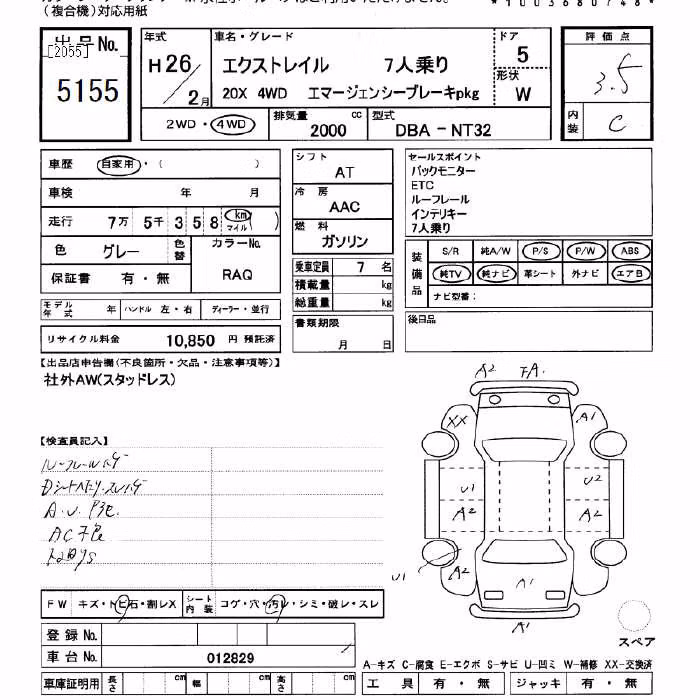 （複合機）対応用紙
*1003680748*
出品No.
[2055]
5155
年式
H26/2月
車名・グレード
エクストレイル 7人乗り
20X 4WD エマージェンシーブレーキpkg
ドア
5
形状
W
評価点
3.5
内装
C
2WD・4WD
排気量
2000 cc
型式
DBA-NT32
車歴 自家用・( )
車検 年 月
走行 7万 5千 3 5 8 km マイル ( )
色 グレー
色替
カラーNo.
RAQ
保証書 有・無
モデル年式 年
ハンドル 左・右
ディーラー・並行
リサイクル料金 10,850 円 預託済
シフト
AT
冷房
AAC
燃料
ガソリン
乗車定員 7 名
積載量 kg
総重量 kg
書類期限
月 日
セールスポイント
バックモニター
ETC
ルーフレール
インテリキー
7人乗り
装備品
S/R 純A/W P/S P/W ABS
純TV 純ナビ 革シート 外ナビ エアB
ナビ型番：
後日品
【出品店申告欄(不良箇所・欠品・注意事項等)】
社外AW(スタッドレス)
【検査員記入】
ルーフレールハゲ
A2 FA1
XX A1
U1 U2
A2 A2
A2 A2
U1
A1
A1
スペア
FW キズ・トビ石・割レX
シート内装 コゲ・穴・汚レ・シミ・破レ・スレ
登録No.
車台No. 012829
車庫証明用 長さ cm 幅 cm 高さ cm
A-キズ C-腐食 E-エクボ S-サビ U-凹ミ W-補修 XX-交換済
工具 有・無 ジャッキ 有・無